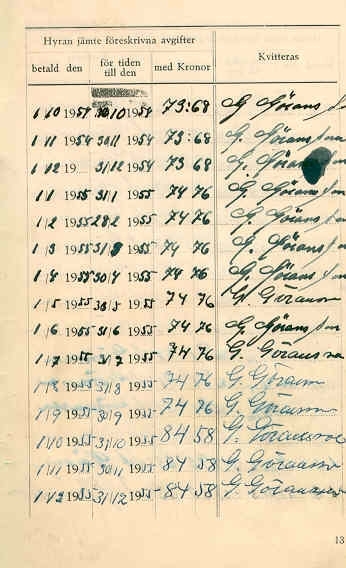 Hyran jämte föreskrivna avgifter
Kvitteras
betald den
för tiden till den
med Kronor
1/10 1954 30/10 1954 73:68 G. Göransson
1/11 1954 30/11 1954 73:68 G. Göransson
1/12 19 31/12 1954 73 68 G. Göransson
1/1 1955 31/1 1955 74 76 G. Göransson
1/2 1955 28/2 1955 74 76 G. Göransson
1/3 1955 31/3 1955 74 76 G. Göransson
1/4 1955 30/4 1955 74 76 G. Göransson
1/5 1955 30/5 1955 74 76 G. Göransson
1/6 1955 31/6 1955 74 76 G. Göransson
1/7 1955 31/7 1955 74 76 G. Göransson
1/8 1955 31/8 1955 74 76 G. Göransson
1/9 1955 30/9 1955 74 76 G. Göransson
1/10 1955 31/10 1955 84 58 G. Göransson
1/11 1955 30/11 1955 84 58 G. Göransson
1/12 1955 31/12 1955 84 58 G. Göransson
13